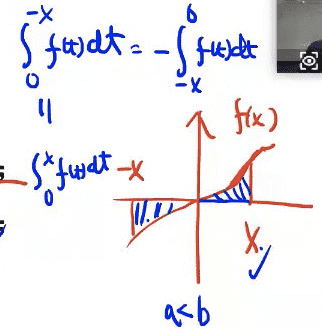 ∫₀^{-x} f(t)dt = -∫_{-x}^{0} f(t)dt
||
∫₀^{x} f(t)dt
f(x)
-x
x
a<b